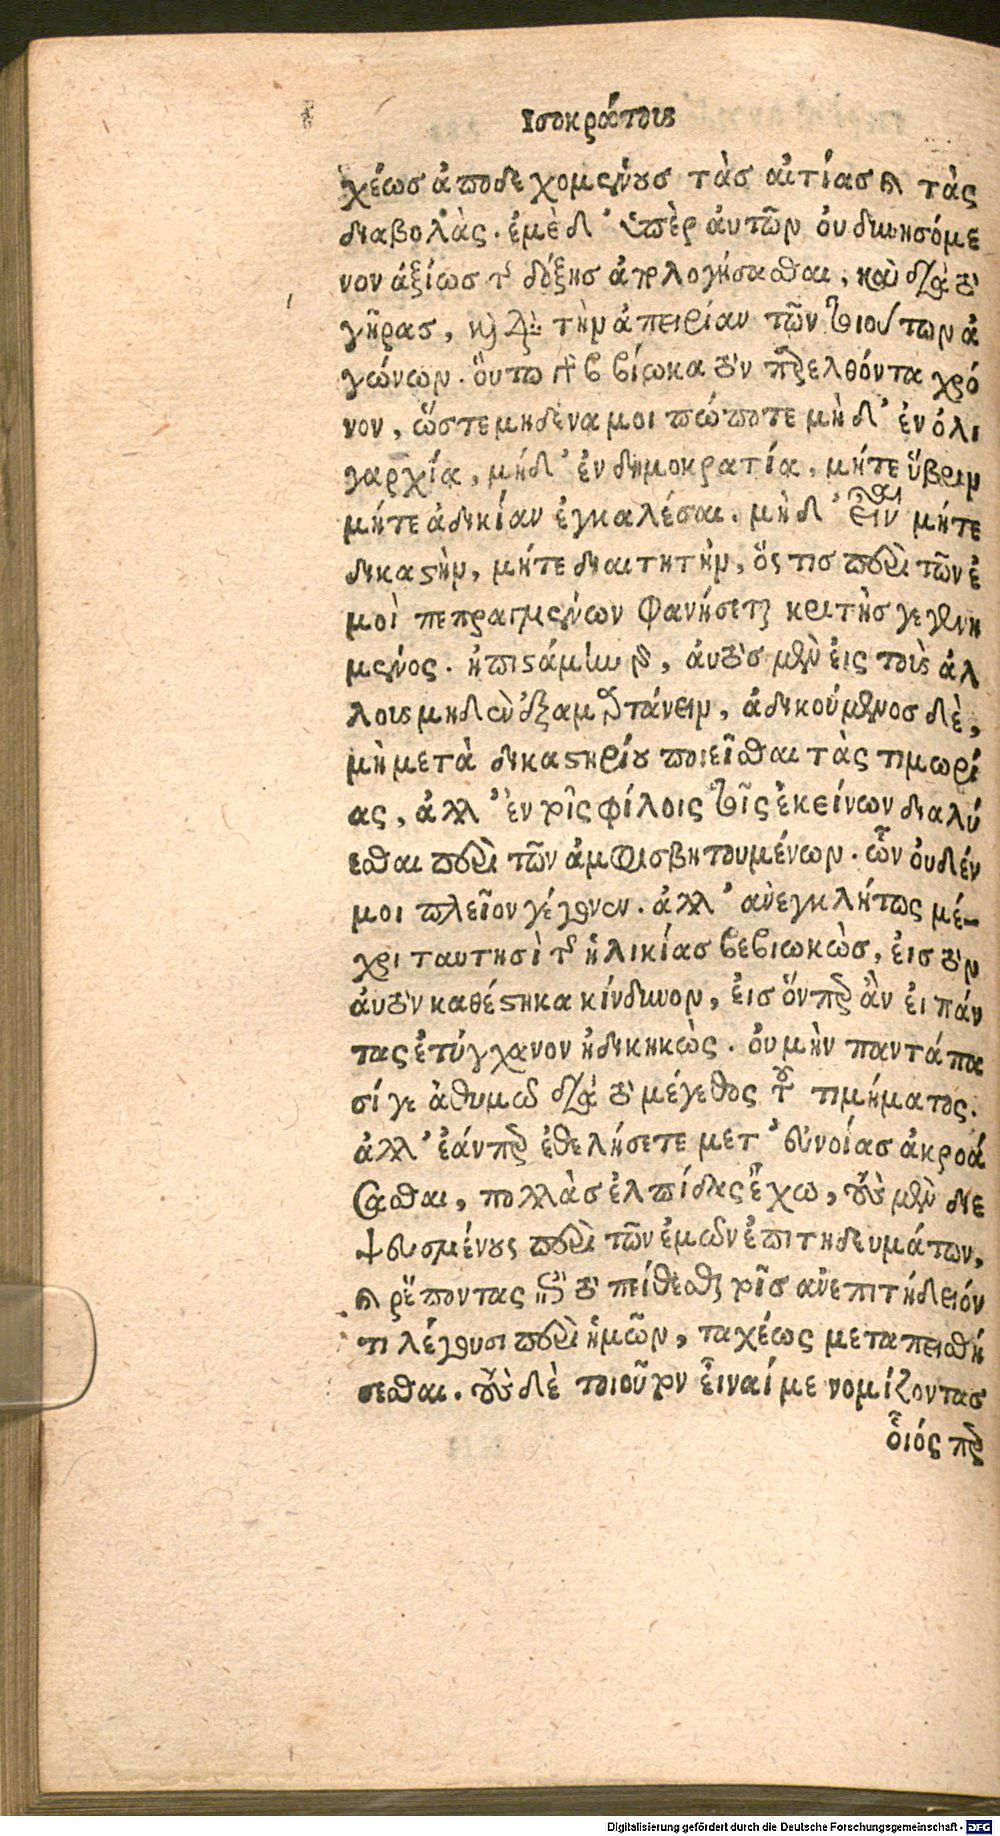 Ισοκράτους
χέως ἀποδεχομένους τὰς αἰτίας καὶ τὰς
διαβολὰς. ἐμὲ δ' ὑπὲρ αὐτῶν οὐ δυνησόμε
νον ἀξίως τῆς δόξης ἀπολογήσασθαι, καὶ διὰ τὸ
γῆρας, καὶ διὰ τὴν ἀπειρίαν τῶν τοιούτων ἀ
γώνων. οὕτω γὰρ βεβίωκα τὸν παρελθόντα χρό
νον, ὥστε μηδένα μοι πώποτε μὴ δ' ἐν ὀλι
γαρχία, μήδ' ἐν δημοκρατία, μήτε ὕβριν
μήτε ἀδικίαν ἐγκαλέσαι. μὴ δ' εἶναι μήτε
δικαστὴν, μήτε διαιτητὴν, ὅς τις περὶ τῶν ἐ
μοὶ πεπραγμένων φανήσεται κριτὴς γεγενη
μένος. ἠπιστάμην γὰρ, αὐτὸς μὲν εἰς τοὺς ἀλ
λους μηδὲν ἐξαμαρτάνειν, ἀδικούμενος δὲ,
μὴ μετὰ δικαστηρίου ποιεῖσθαι τὰς τιμωρί
ας, ἀλλ' ἐν τοῖς φίλοις τοῖς ἐκείνων διαλύ
εσθαι περὶ τῶν ἀμφισβητουμένων. ὧν οὐδέν
μοι πλεῖον γέγονεν. ἀλλ' ἀνεγκλήτως μέ-
χρι ταυτησὶ τῆς ἡλικίας βεβιωκὼς, εἰς τὸν
αὐτὸν καθέστηκα κίνδυνον, εἰς ὅνπερ ἂν εἰ πάν
τας ἐτύγχανον ἠδικηκὼς. οὐ μὴν παντάπα
σί γε ἀθυμῶ διὰ τὸ μέγεθος τοῦ τιμήματος.
ἀλλ' ἐάνπερ ἐθελήσετε μετ' εὐνοίας ἀκροά
σασθαι, πολλὰς ἐλπίδας ἔχω, τοὺς μὲν διε
ψευσμένους περὶ τῶν ἐμῶν ἐπιτηδευμάτων,
καὶ ῥέποντας ἐπὶ τὸ πείθεσθαι τοῖς ἀνεπιτήδειόν
τι λέγουσι περὶ ἡμῶν, ταχέως μεταπεισθή
σεσθαι. τοὺς δὲ τοιοῦτον εἶναί με νομίζοντας
οἷός περ
Digitalisierung gefördert durch die Deutsche Forschungsgemeinschaft - DFG